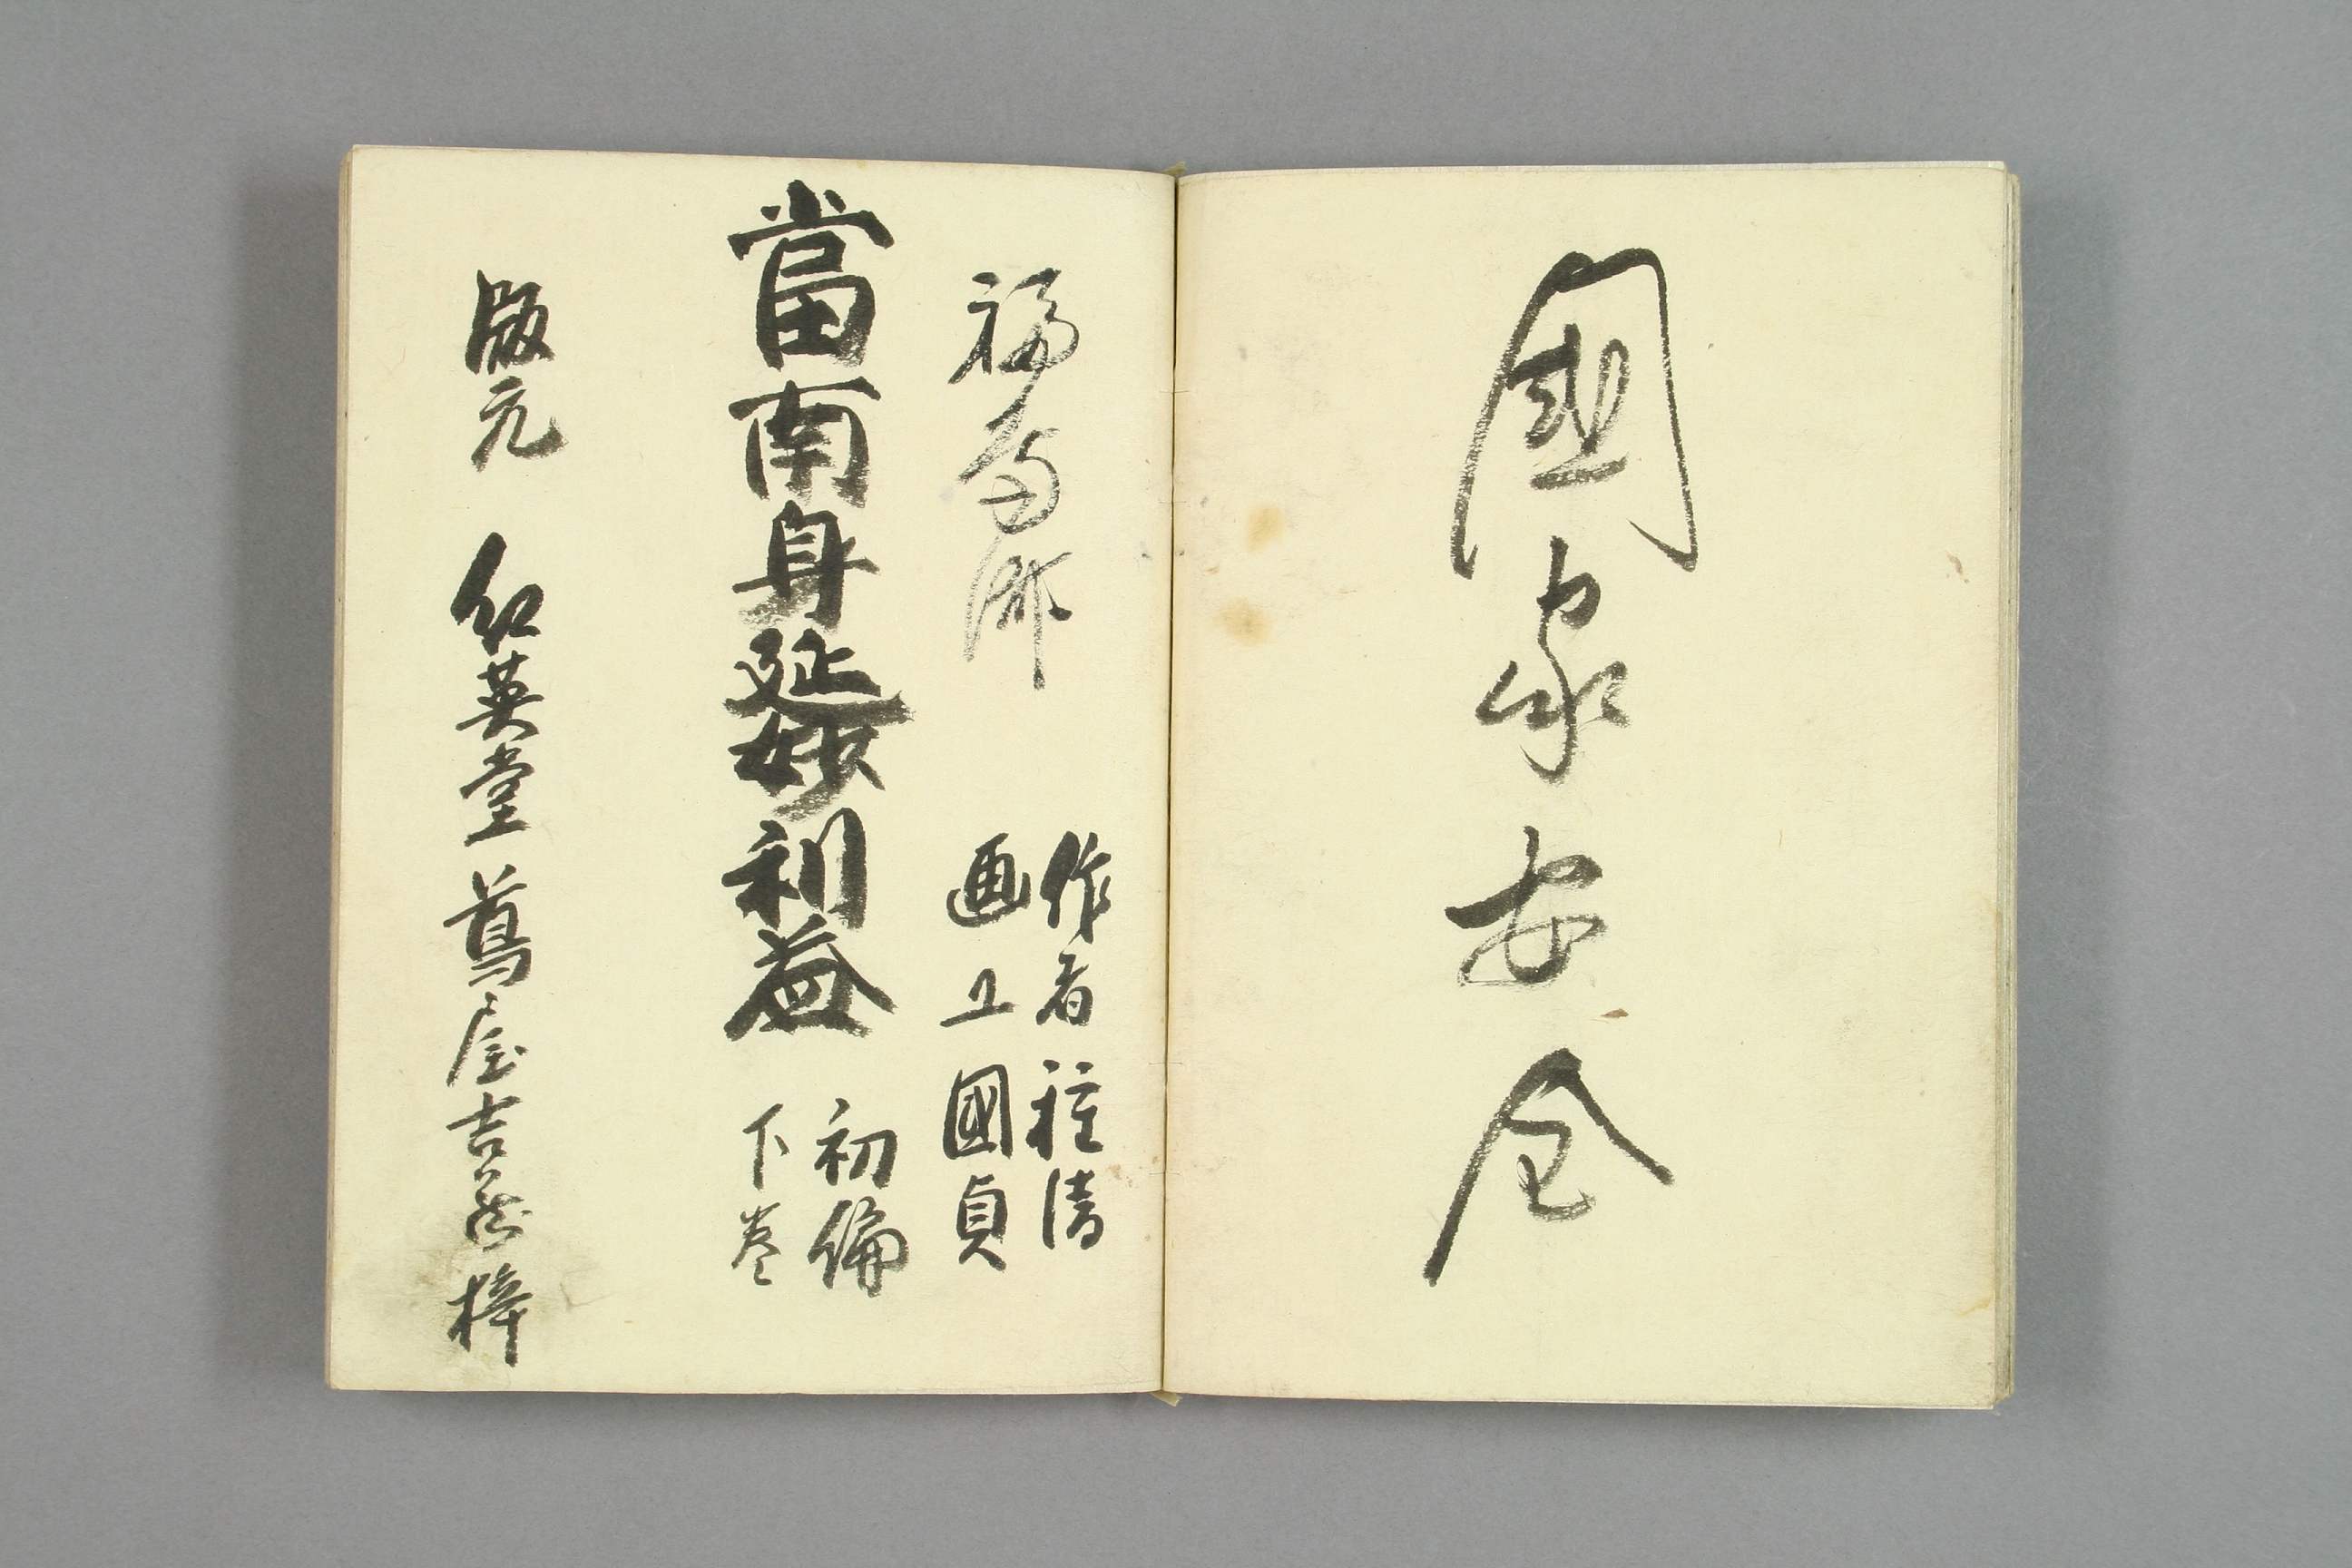 國家安全
福
作者 種清
画工 國貞
當南身延妙利益
初編
下巻
版元 紅英堂 蔦屋吉蔵 梓